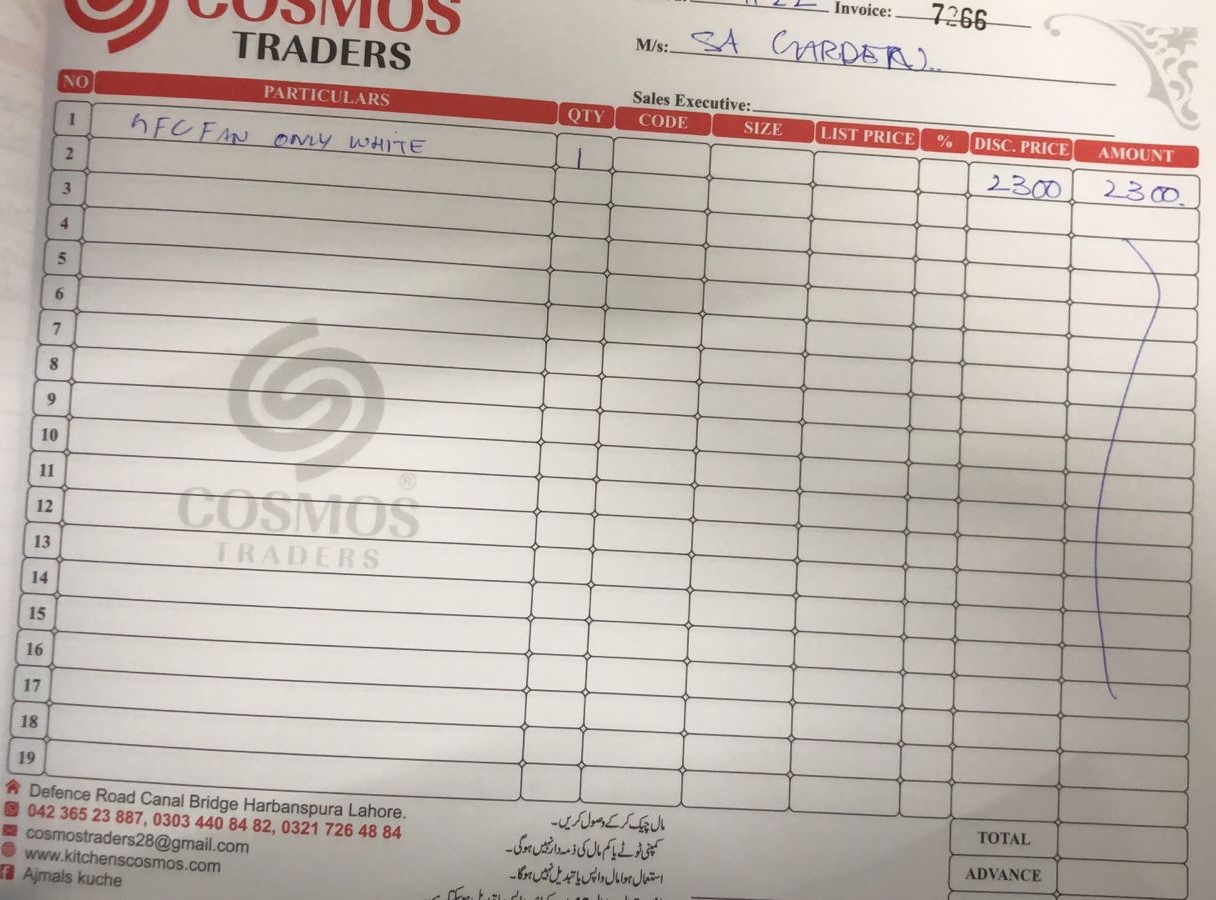 COSMOS
TRADERS
Invoice: 7266
M/s: SA GARDEN
Sales Executive:
NO PARTICULARS QTY CODE SIZE LIST PRICE % DISC. PRICE AMOUNT
1 GFC FAN ONLY WHITE 1 2300 2300.
2
3
4
5
6
7
8
9
10
11
12
13
14
15
16
17
18
19
COSMOS ®
TRADERS
Defence Road Canal Bridge Harbanspura Lahore.
042 365 23 887, 0303 440 84 82, 0321 726 48 84
cosmostraders28@gmail.com
www.kitchenscosmos.com
Ajmals kuche
مال چیک کر کے وصول کریں۔
کمپنی ٹوٹے یا کم مال کی ذمہ دار نہیں ہوگی۔
استعمال ہوا مال واپس یا تبدیل نہیں ہوگا۔
TOTAL
ADVANCE